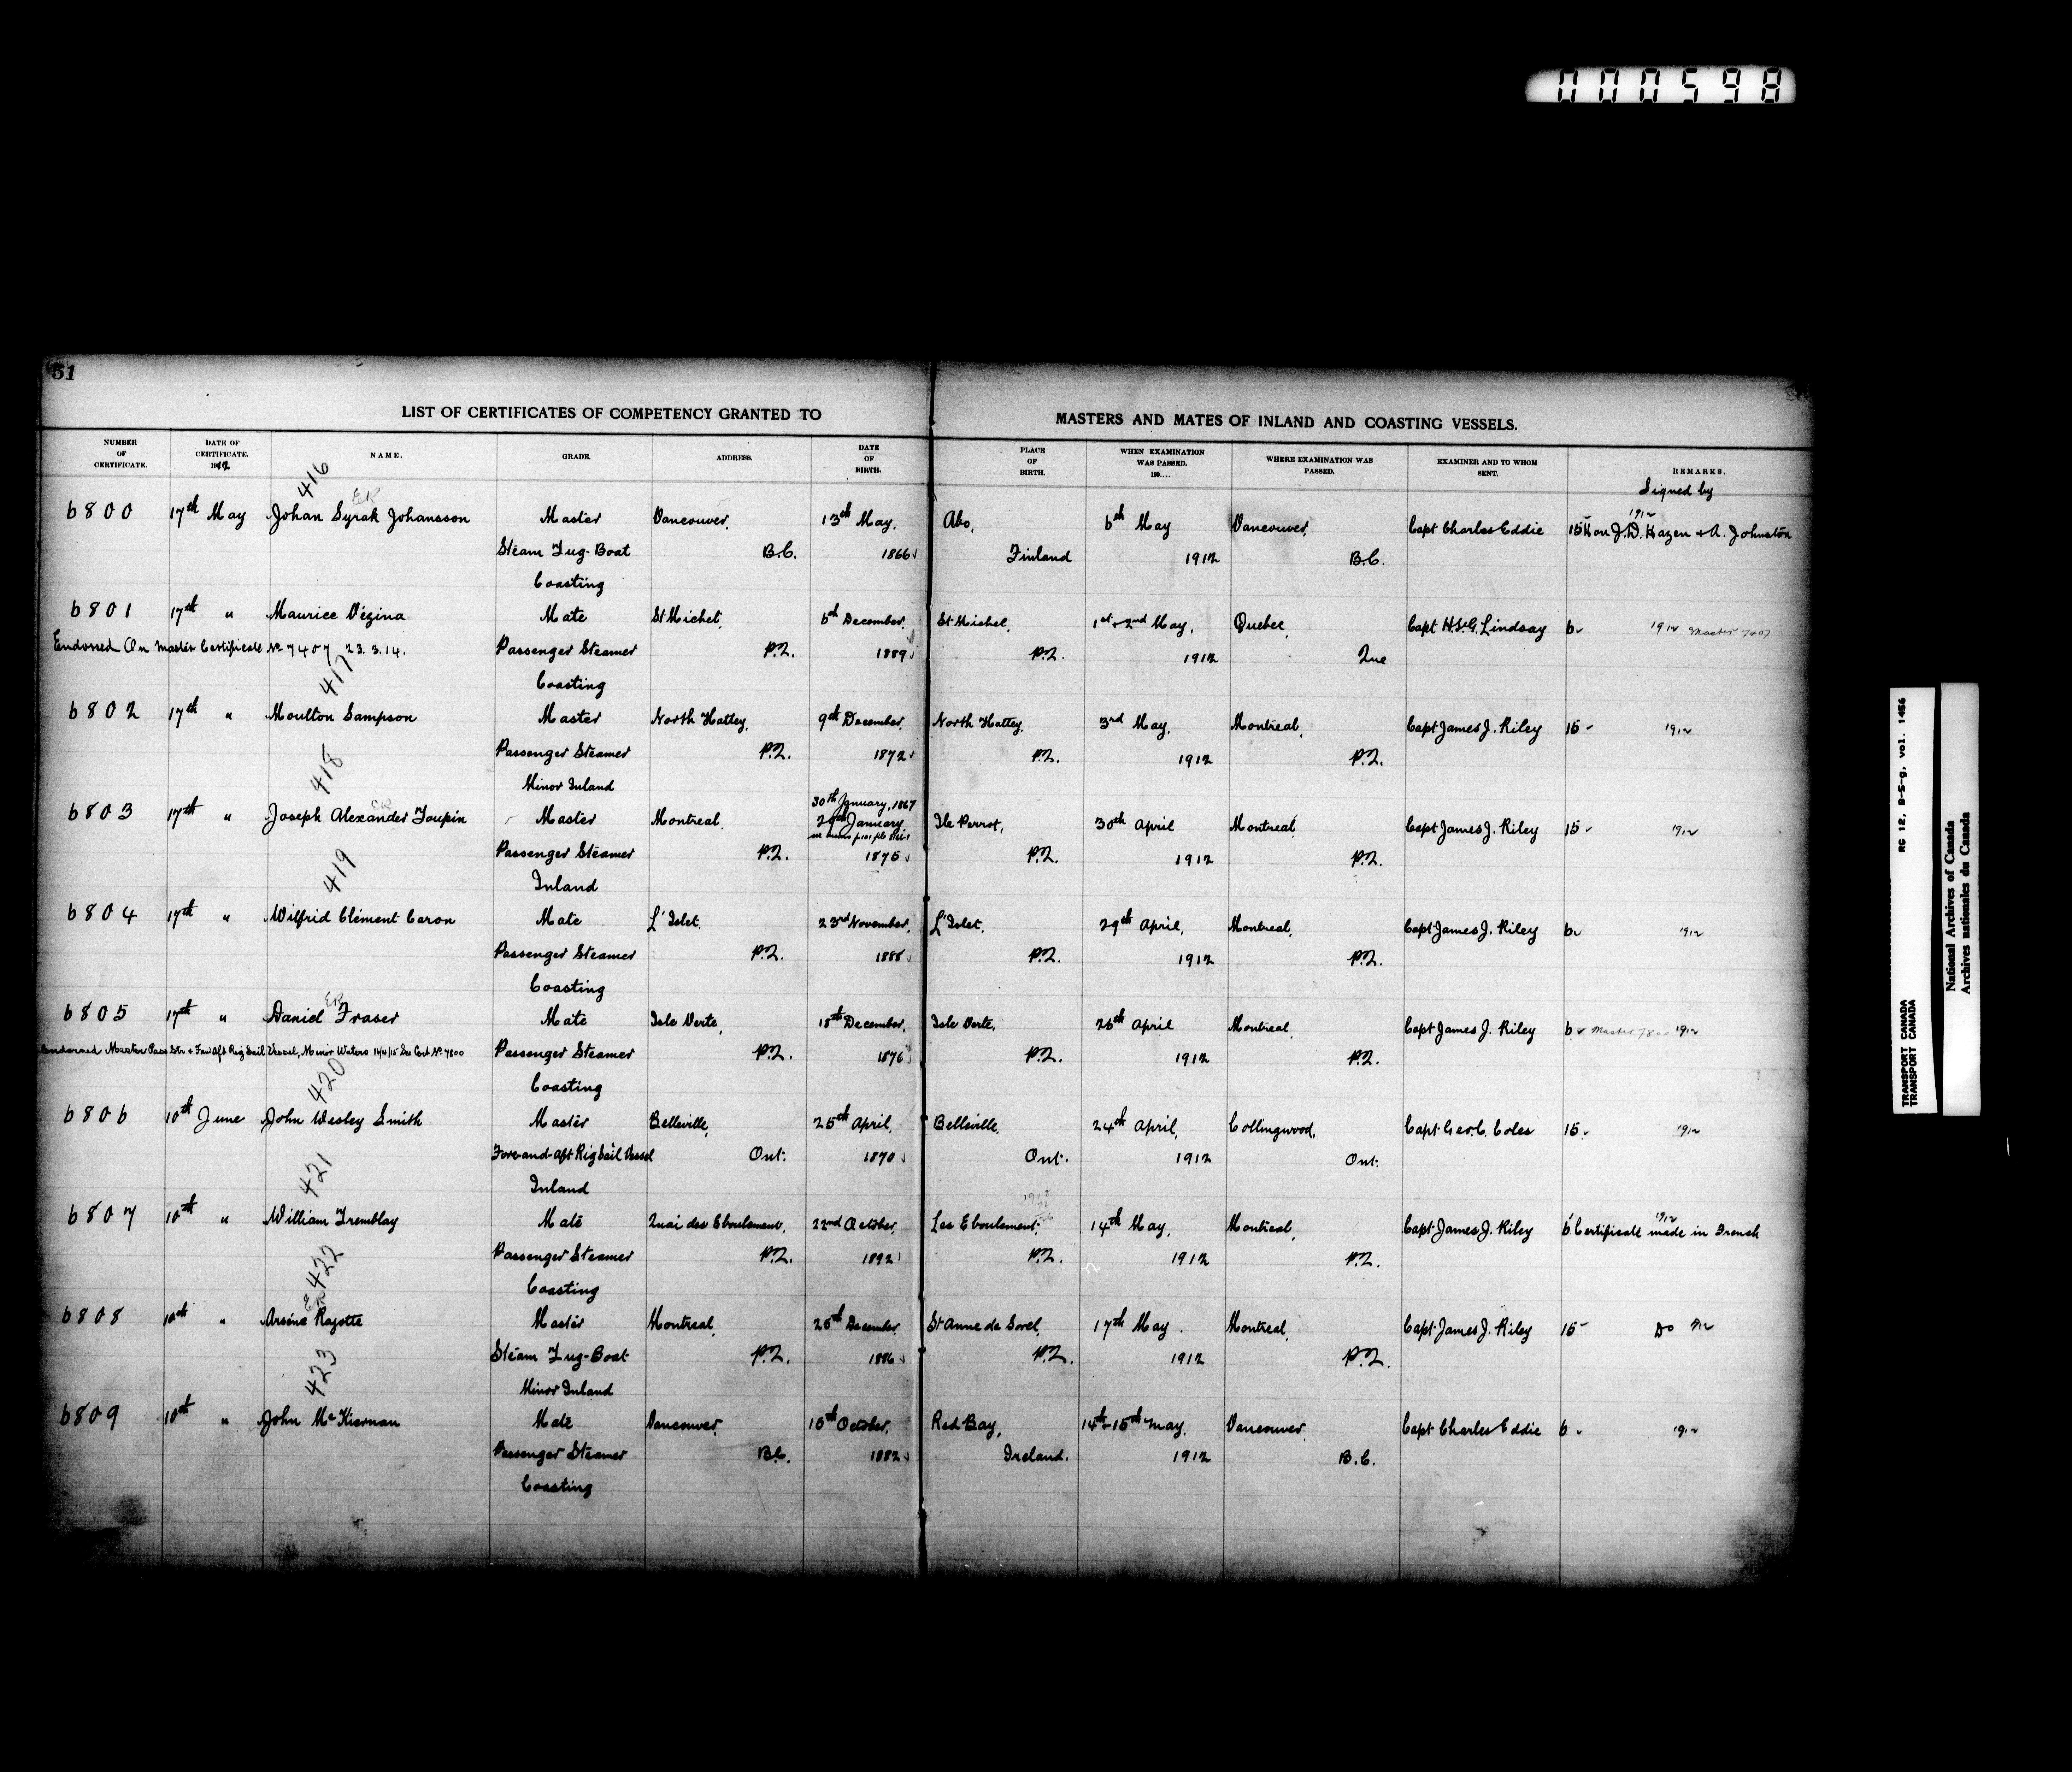 000598
51
LIST OF CERTIFICATES OF COMPETENCY GRANTED TO MASTERS AND MATES OF INLAND AND COASTING VESSELS.
NUMBER OF CERTIFICATE. DATE OF CERTIFICATE. 1912 NAME. GRADE. ADDRESS. DATE OF BIRTH. PLACE OF BIRTH. WHEN EXAMINATION WAS PASSED. 190.... WHERE EXAMINATION WAS PASSED. EXAMINER AND TO WHOM SENT. REMARKS.
Signed by
416
6800 17th May Johan Syrak Johansson Master Vancouver, 13th May, Abo, 6th May Vancouver, Capt Charles Eddie 15 Hon J.D. Hazen + A. Johnston 1912
Steam Tug-Boat B.C. 1866 Finland 1912 B.C.
Coasting
6801 17th " Maurice Vézina Mate St Michel, 6th December, St Michel, 1st + 2nd May, Quebec, Capt H. St G. Lindsay 6 1912 Master 7407
Endorsed On Master Certificate No 7407 23.3.14. Passenger Steamer P.Q. 1889 P.Q. 1912 Que
417 Coasting
6802 17th " Moulton Sampson Master North Hatley, 9th December, North Hatley, 3rd May, Montreal, Capt James J. Riley 15 1912
Passenger Steamer P.Q. 1872 P.Q. 1912 P.Q.
418 Minor Inland
30th January, 1867
6803 17th " Joseph Alexander Toupin Master Montreal, 29th January Ile Perrot, 30th April Montreal, Capt James J. Riley 15 1912
Passenger Steamer P.Q. 1875 P.Q. 1912 P.Q.
419 Inland
6804 17th " Wilfrid Clément Caron Mate L'Islet, 23rd November, L'Islet, 29th April, Montreal, Capt James J. Riley 6 1912
Passenger Steamer P.Q. 1888 P.Q. 1912 P.Q.
Coasting
6805 17th " Daniel Fraser Mate Isle Verte, 18th December, Isle Verte, 26th April Montreal Capt James J. Riley 6 Master 7800 1912
Endorsed Master Pass Str + Fore Aft Rig Sail Vessel, Minor Waters See Cert No 7800 Passenger Steamer P.Q. 1876 P.Q. 1912 P.Q.
420 Coasting
6806 10th June John Wesley Smith Master Belleville, 25th April, Belleville, 24th April, Collingwood, Capt Geo. C. Coles 15 1912
Fore-and-aft Rig Sail Vessel Ont. 1870 Ont. 1912 Ont.
421 Inland
6807 10th " William Tremblay Mate Quai des Eboulement, 22nd October, Les Eboulement, 14th May, Montreal, Capt James J. Riley 6 Certificate made in French 1912
Passenger Steamer P.Q. 1892 P.Q. 1912 P.Q.
422 Coasting
6808 10th " Arséne Rajotte Master Montreal, 25th December St Anne de Sorel, 17th May Montreal, Capt James J. Riley 15 Do 1912
Steam Tug-Boat P.Q. 1886 P.Q. 1912 P.Q.
423 Minor Inland
6809 10th " John McKiernan Mate Vancouver, 10th October, Red Bay, 14th-15th May, Vancouver Capt Charles Eddie 6 1912
Passenger Steamer B.C. 1882 Ireland. 1912 B.C.
Coasting
RG 12, B-5-g, vol. 1456
TRANSPORT CANADA
TRANSPORT CANADA
National Archives of Canada
Archives nationales du Canada